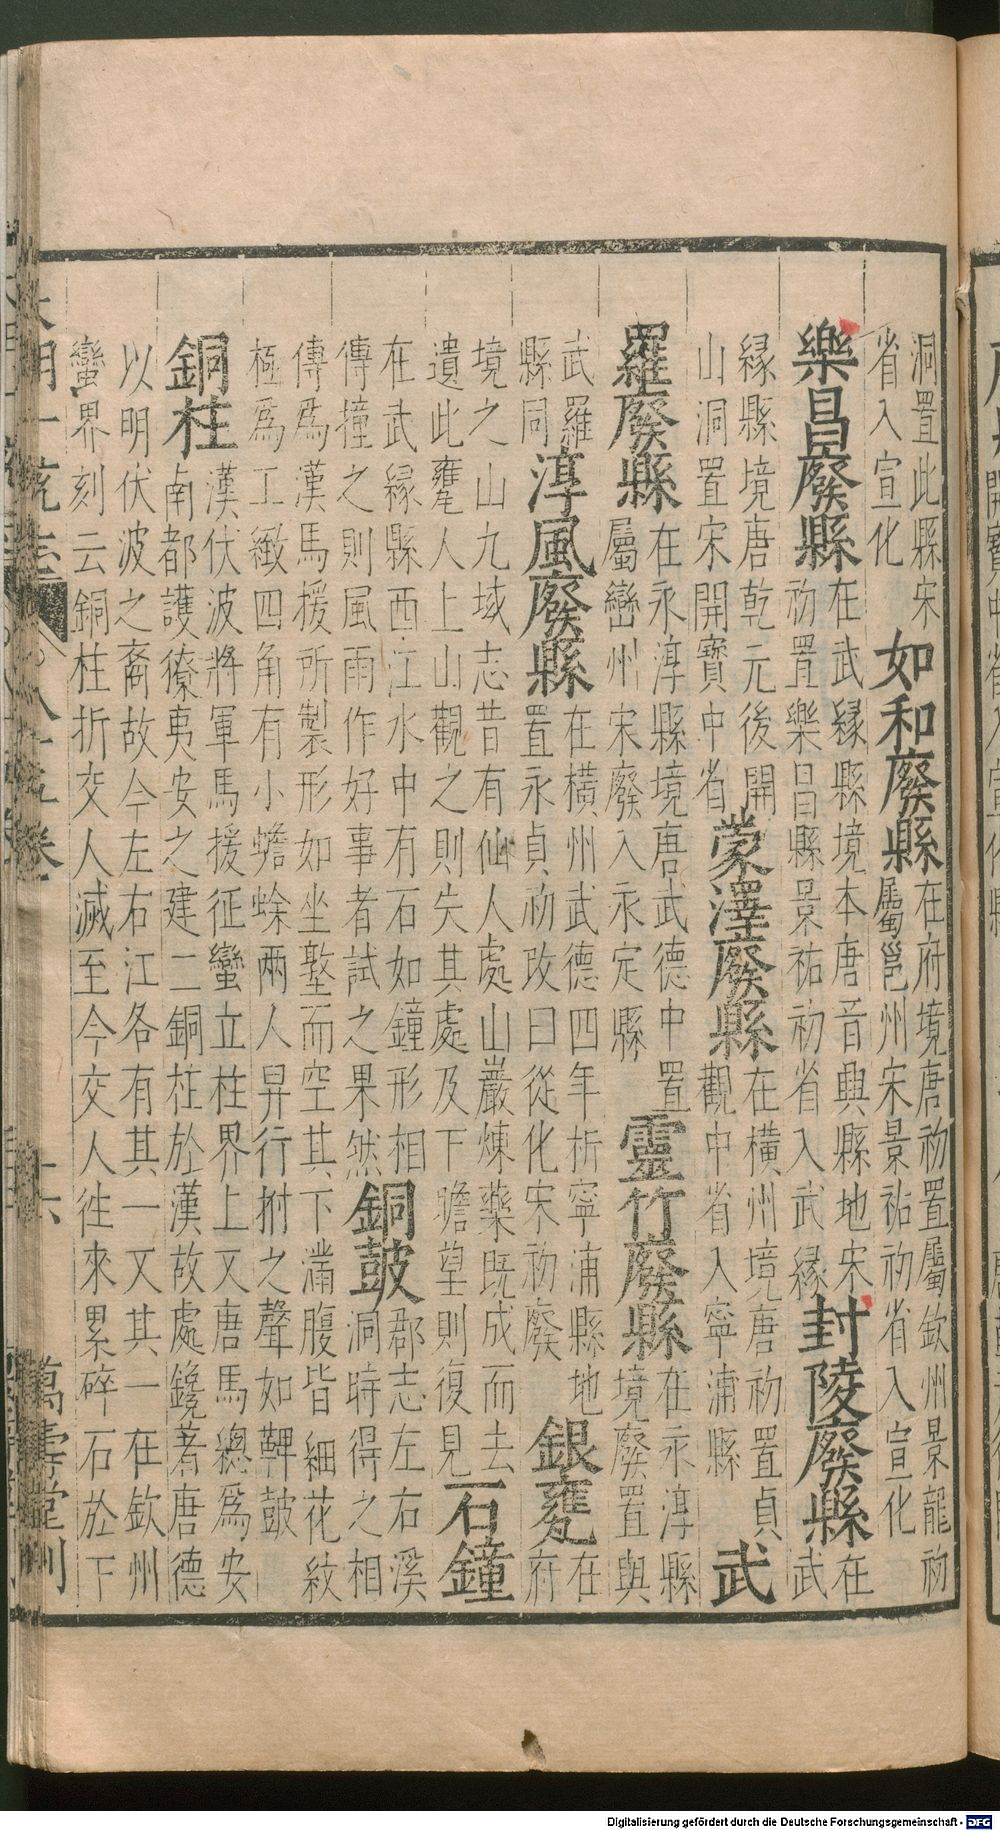 洞置此縣宋
省入宣化
如和廢縣
在府境唐初置屬欽州景龍初
屬邕州宋景祐初省入宣化
樂昌廢縣
在武緣縣境本唐音興縣地宋
初置樂昌縣景祐初省入武緣
封陵廢縣
在
武
緣縣境唐乾元後開
山洞置宋開寶中省
蒙澤廢縣
在橫州境唐初置貞
觀中省入寧浦縣
武
羅廢縣
在永淳縣境唐武德中置
屬巒州宋廢入永定縣
靈竹廢縣
在永淳縣
境廢置與
武羅
縣同
淳風廢縣
在橫州武德四年析寧浦縣地
置永貞初改曰從化宋初廢
銀甕
在
府
境之山九域志昔有仙人處山巖煉藥既成而去
遺此甕人上山觀之則失其處及下瞻望則復見
石鐘
在武緣縣西江水中有石如鐘形相
傳撞之則風雨作好事者試之果然
銅鼓
郡志左右溪
洞時得之相
傳爲漢馬援所製形如坐墪而空其下滿腹皆細花紋
極爲工緻四角有小蟾蜍兩人舁行拊之聲如鞞鼓
銅柱
漢伏波將軍馬援征蠻立柱界上又唐馬總爲安
南都護獠夷安之建二銅柱於漢故處鑱著唐德
以明伏波之裔故今左右江各有其一又其一在欽州
蠻界刻云銅柱折交人滅至今交人往來累碎石於下
大明一統志 八十五卷 十六 萬壽堂刊
Digitalisierung gefördert durch die Deutsche Forschungsgemeinschaft - DFG